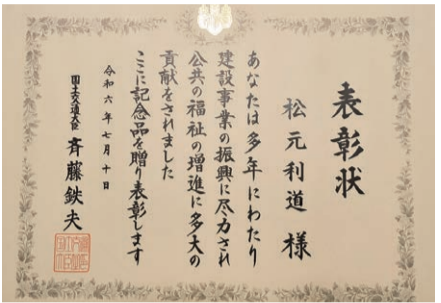 表彰状
松元利道 様
あなたは多年にわたり
建設事業の振興に尽力され
公共の福祉の増進に多大の
貢献をされました
ここに記念品を贈り表彰します
令和六年七月十日
国土交通大臣 斉藤鉄夫